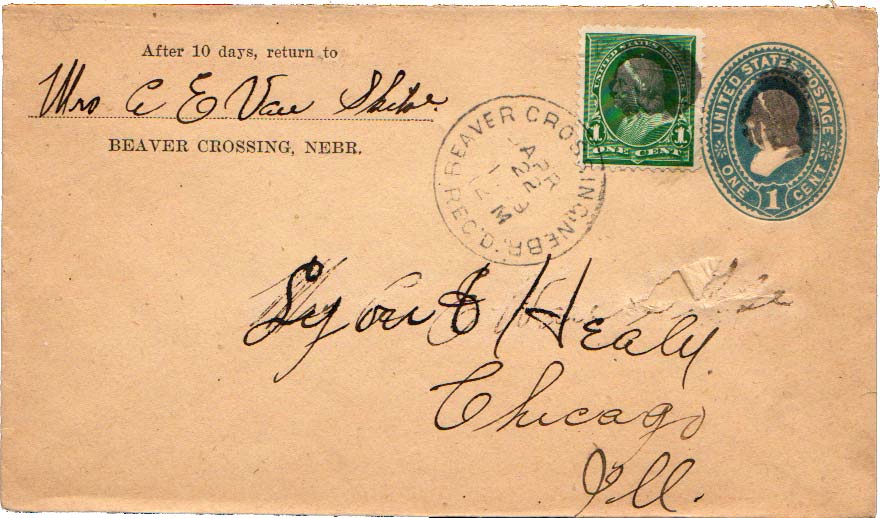 After 10 days, return to
Mrs C E Van
BEAVER CROSSING, NEBR.
UNITED STATES POSTAGE
ONE CENT
1 1
BEAVER CROSSING, NEBR. REC'D.
APR
22
M
UNITED STATES POSTAGE
ONE 1 CENT
Lyon & Healy
Chicago
Ill.